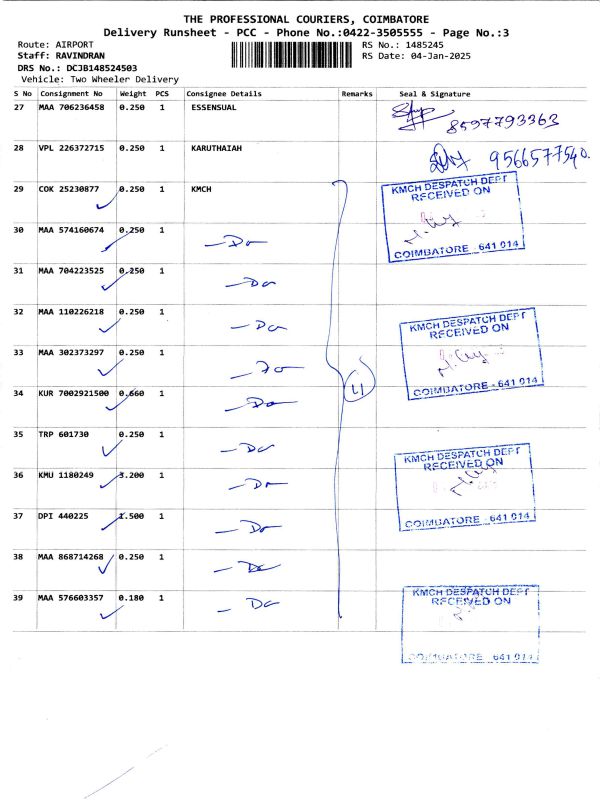 THE PROFESSIONAL COURIERS, COIMBATORE
Delivery Runsheet - PCC - Phone No.:0422-3505555 - Page No.:3
Route: AIRPORT RS No.: 1485245
Staff: RAVINDRAN RS Date: 04-Jan-2025
DRS No.: DCJB148524503
Vehicle: Two Wheeler Delivery
S No Consignment No Weight PCS Consignee Details Remarks Seal & Signature
27 MAA 706236458 0.250 1 ESSENSUAL
8597793363
28 VPL 226372715 0.250 1 KARUTHAIAH
9566577540.
29 COK 25230877 0.250 1 KMCH
KMCH DESPATCH DEPT
RECEIVED ON
COIMBATORE - 641 014
30 MAA 574160674 0.250 1 -Do-
31 MAA 704223525 0.250 1 -Do-
32 MAA 110226218 0.250 1 -Do-
KMCH DESPATCH DEPT
RECEIVED ON
COIMBATORE - 641 014
33 MAA 302373297 0.250 1 -Do-
34 KUR 7002921500 0.660 1 -Do-
11
35 TRP 601730 0.250 1 -Do-
KMCH DESPATCH DEPT
RECEIVED ON
COIMBATORE - 641 014
36 KMU 1180249 3.200 1 -Do-
37 DPI 440225 1.500 1 -Do-
38 MAA 868714268 0.250 1 -Do-
39 MAA 576603357 0.180 1 -Do-
KMCH DESPATCH DEPT
RECEIVED ON
COIMBATORE - 641 014